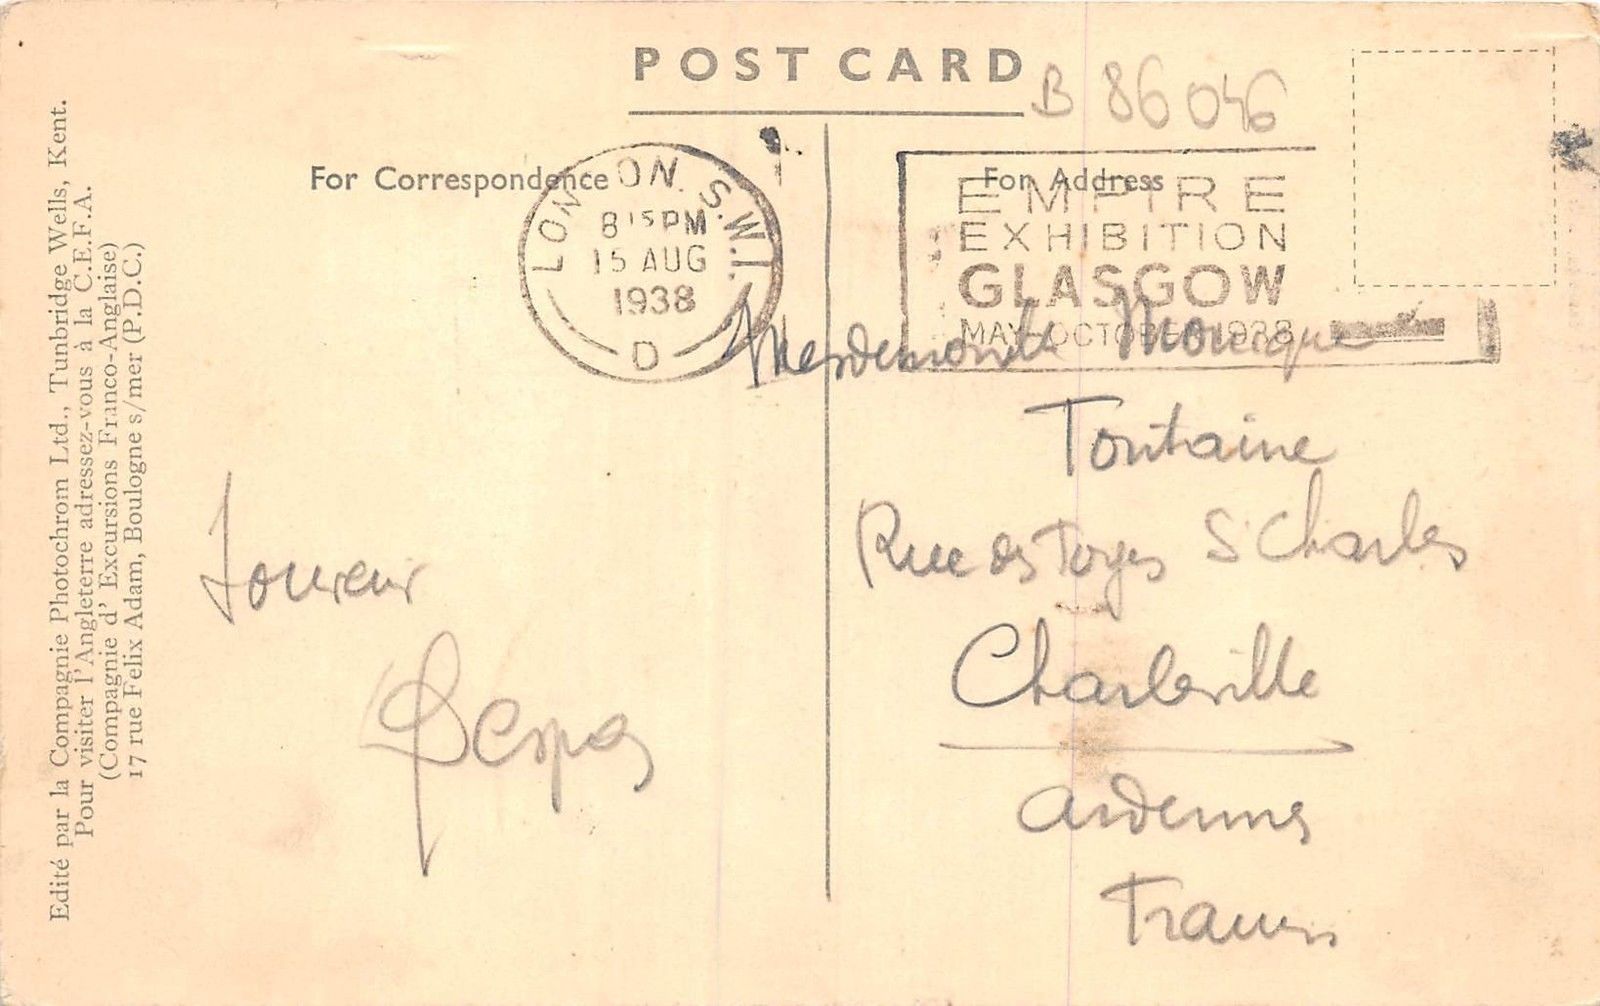 POST CARD
B 86046
For Correspondence
For Address
LONDON. S.W.1.
8 15 PM
15 AUG
1938
D
EMPIRE
EXHIBITION
GLASGOW
MAY-OCTOBER 1938
Monique
Fontaine
Rue des Forges St Charles
Charleville
Ardennes
France
Edité par la Compagnie Photochrom Ltd., Tunbridge Wells, Kent.
Pour visiter l'Angleterre adressez-vous à la C.E.F.A.
(Compagnie d' Excursions Franco-Anglaise)
17 rue Felix Adam, Boulogne s/mer (P.D.C.)